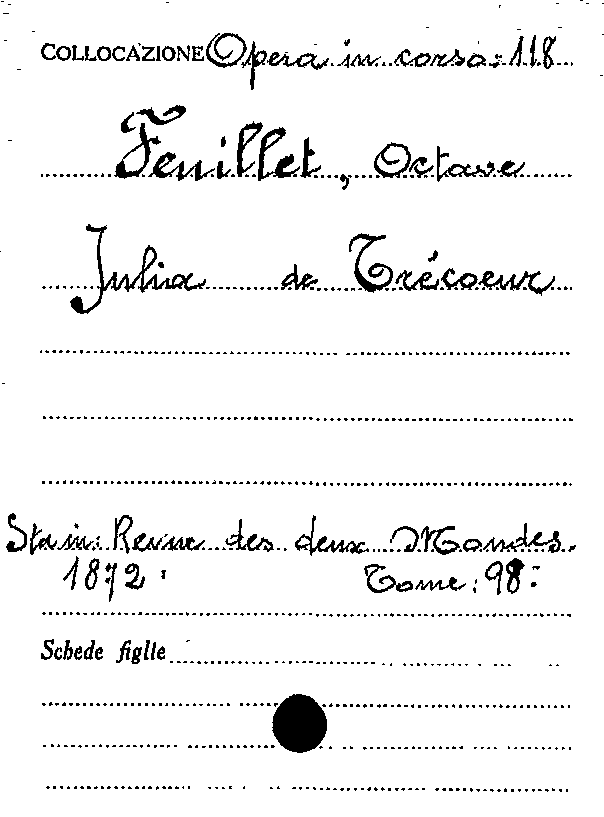 COLLOCAZIONE Opera in corso: 118
Feuillet, Octave
Julia de Trécoeur
Sta in: Revue des deux Mondes.
1872. Tome: 98:
Schede figlie